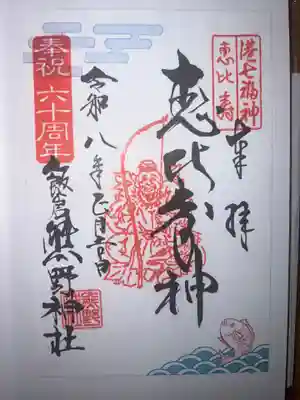 港七福神
恵比寿
奉拝
恵比寿神
令和八年正月五日
奉祝 六十周年
飯倉熊野神社